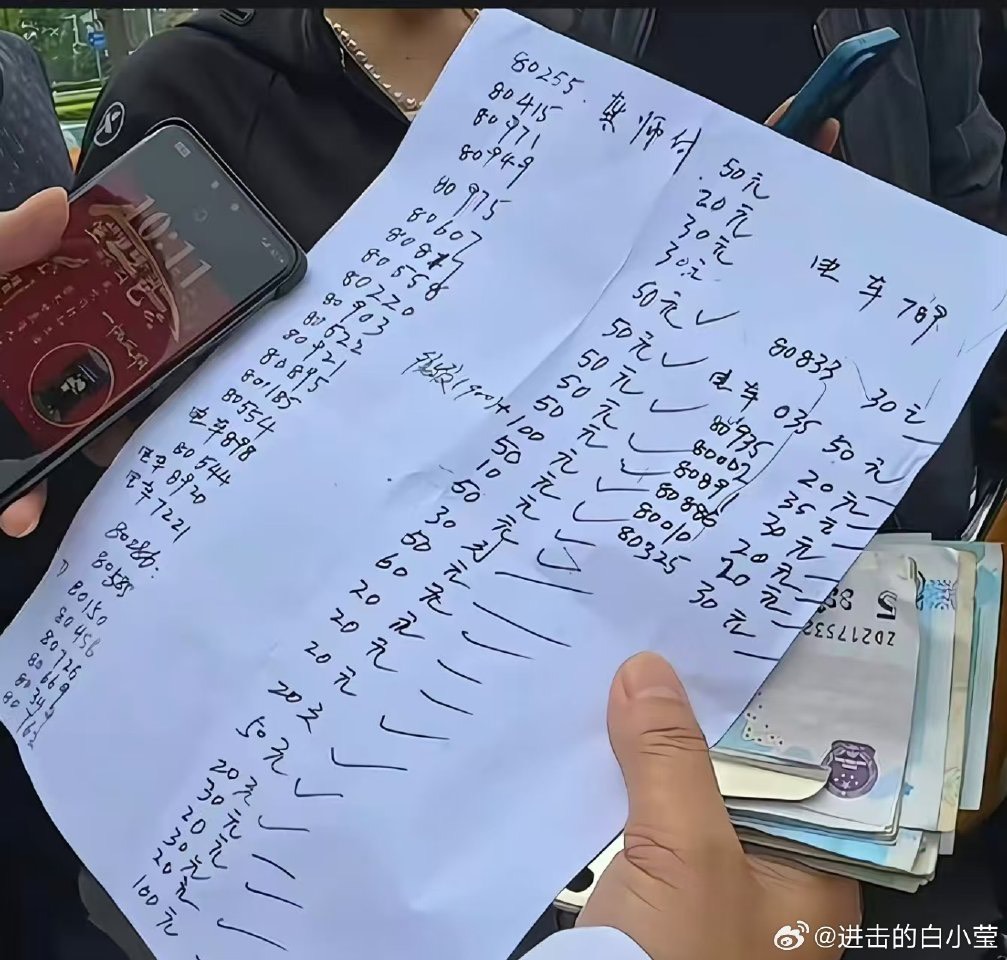 80255. 龚师付 50元
80415 20元
80971 30元
80949 30元
80975 50元
80607 50元
50元
80558 50元
80220 50元
80903 100元
80622 50元
80921 10元
80895 50元
80185 30元
80554 50元
电车898 60元
80544 20元
电车8920 20元
电车7221 20元
80286: 20元
80585 50元
80150 20元
80456 30元
80726 20元
80669 30元
80344 20元
80762 100元
电车
80833 30元
电车 035 50元
80935 20元
80002 35元
80891 30元
80886 20元
80010 20元
80325 30元
10:11
ZD217532
@进击的白小莹